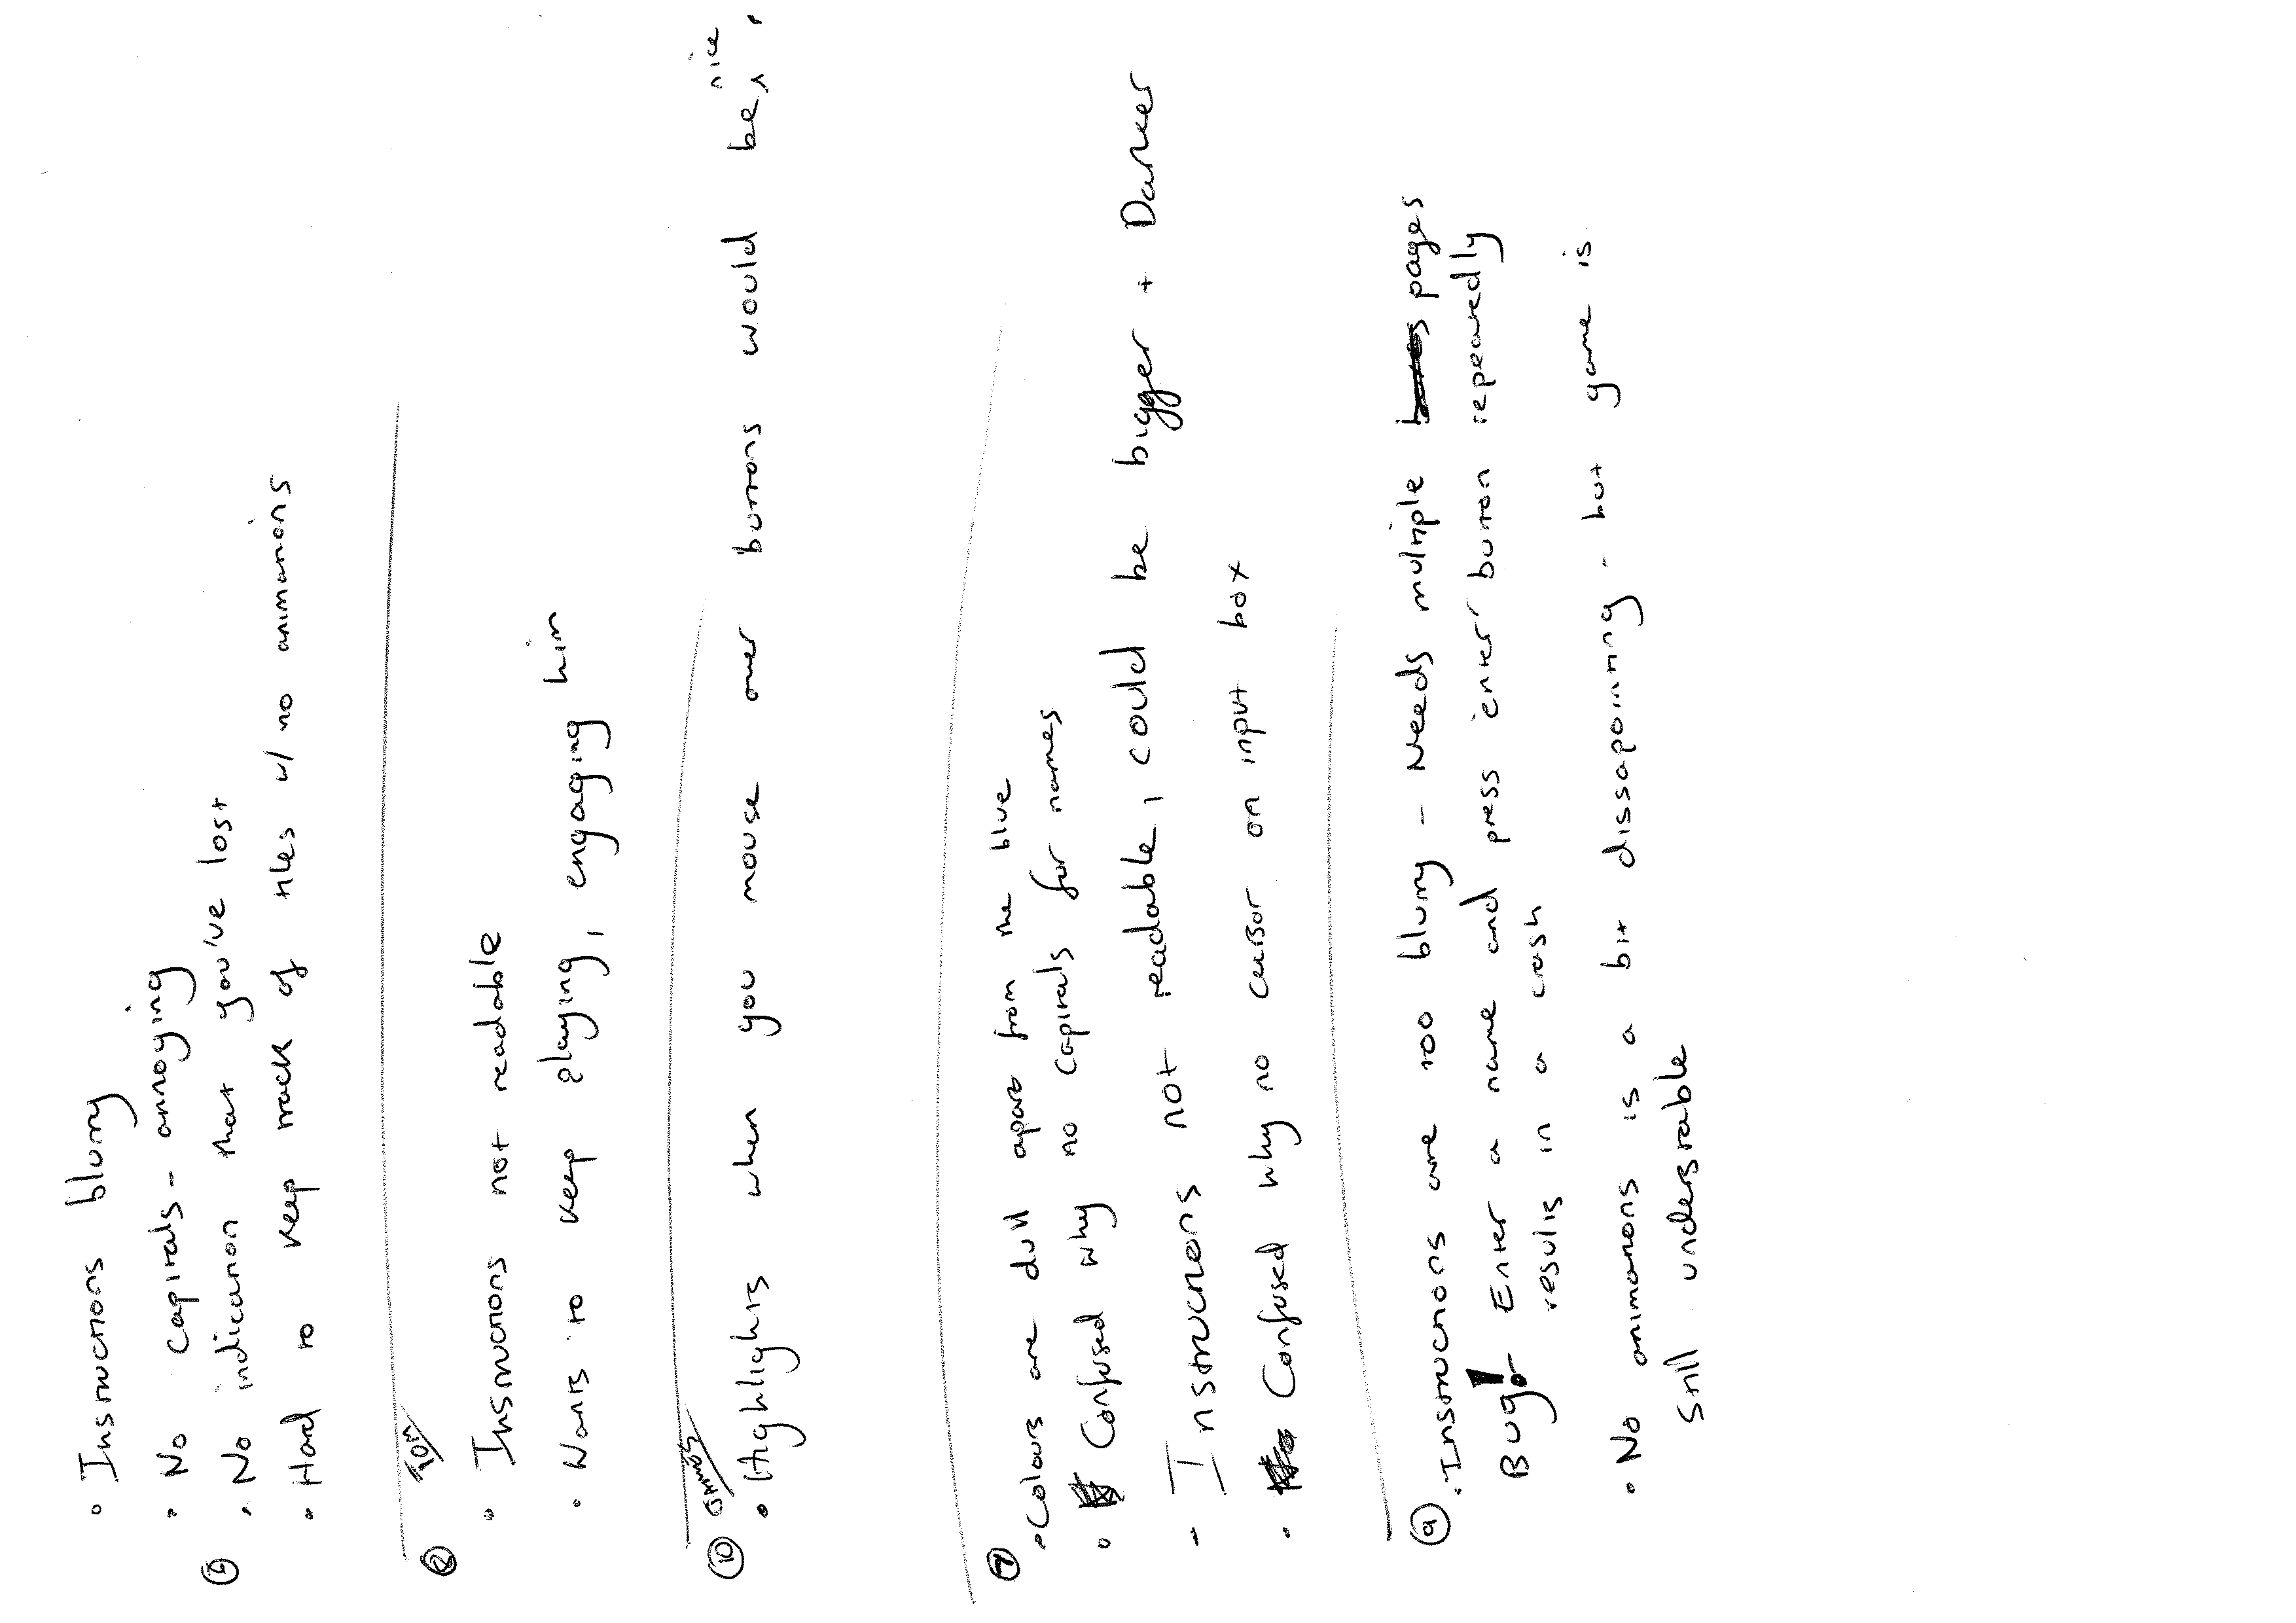 • Instructions blurry
• No capitals - annoying
• No indication that you've lost
• Hard to keep track of tiles w/ no animations
TOM
• Instructions not readable
• Wants to keep playing, engaging him
⑩
• Highlights when you mouse over buttons would be nice
⑦
• Colours are dull apart from the blue
• Confused why no capitals for names
- Instructions not readable, could be bigger + Darker
• Confused why no cursor on input box
⑨
• Instructions are too blurry - Needs multiple pages
Bug! Enter a name and press 'enter' button repeatedly
results in a crash
• No animations is a bit dissapointing - but game is
still understable